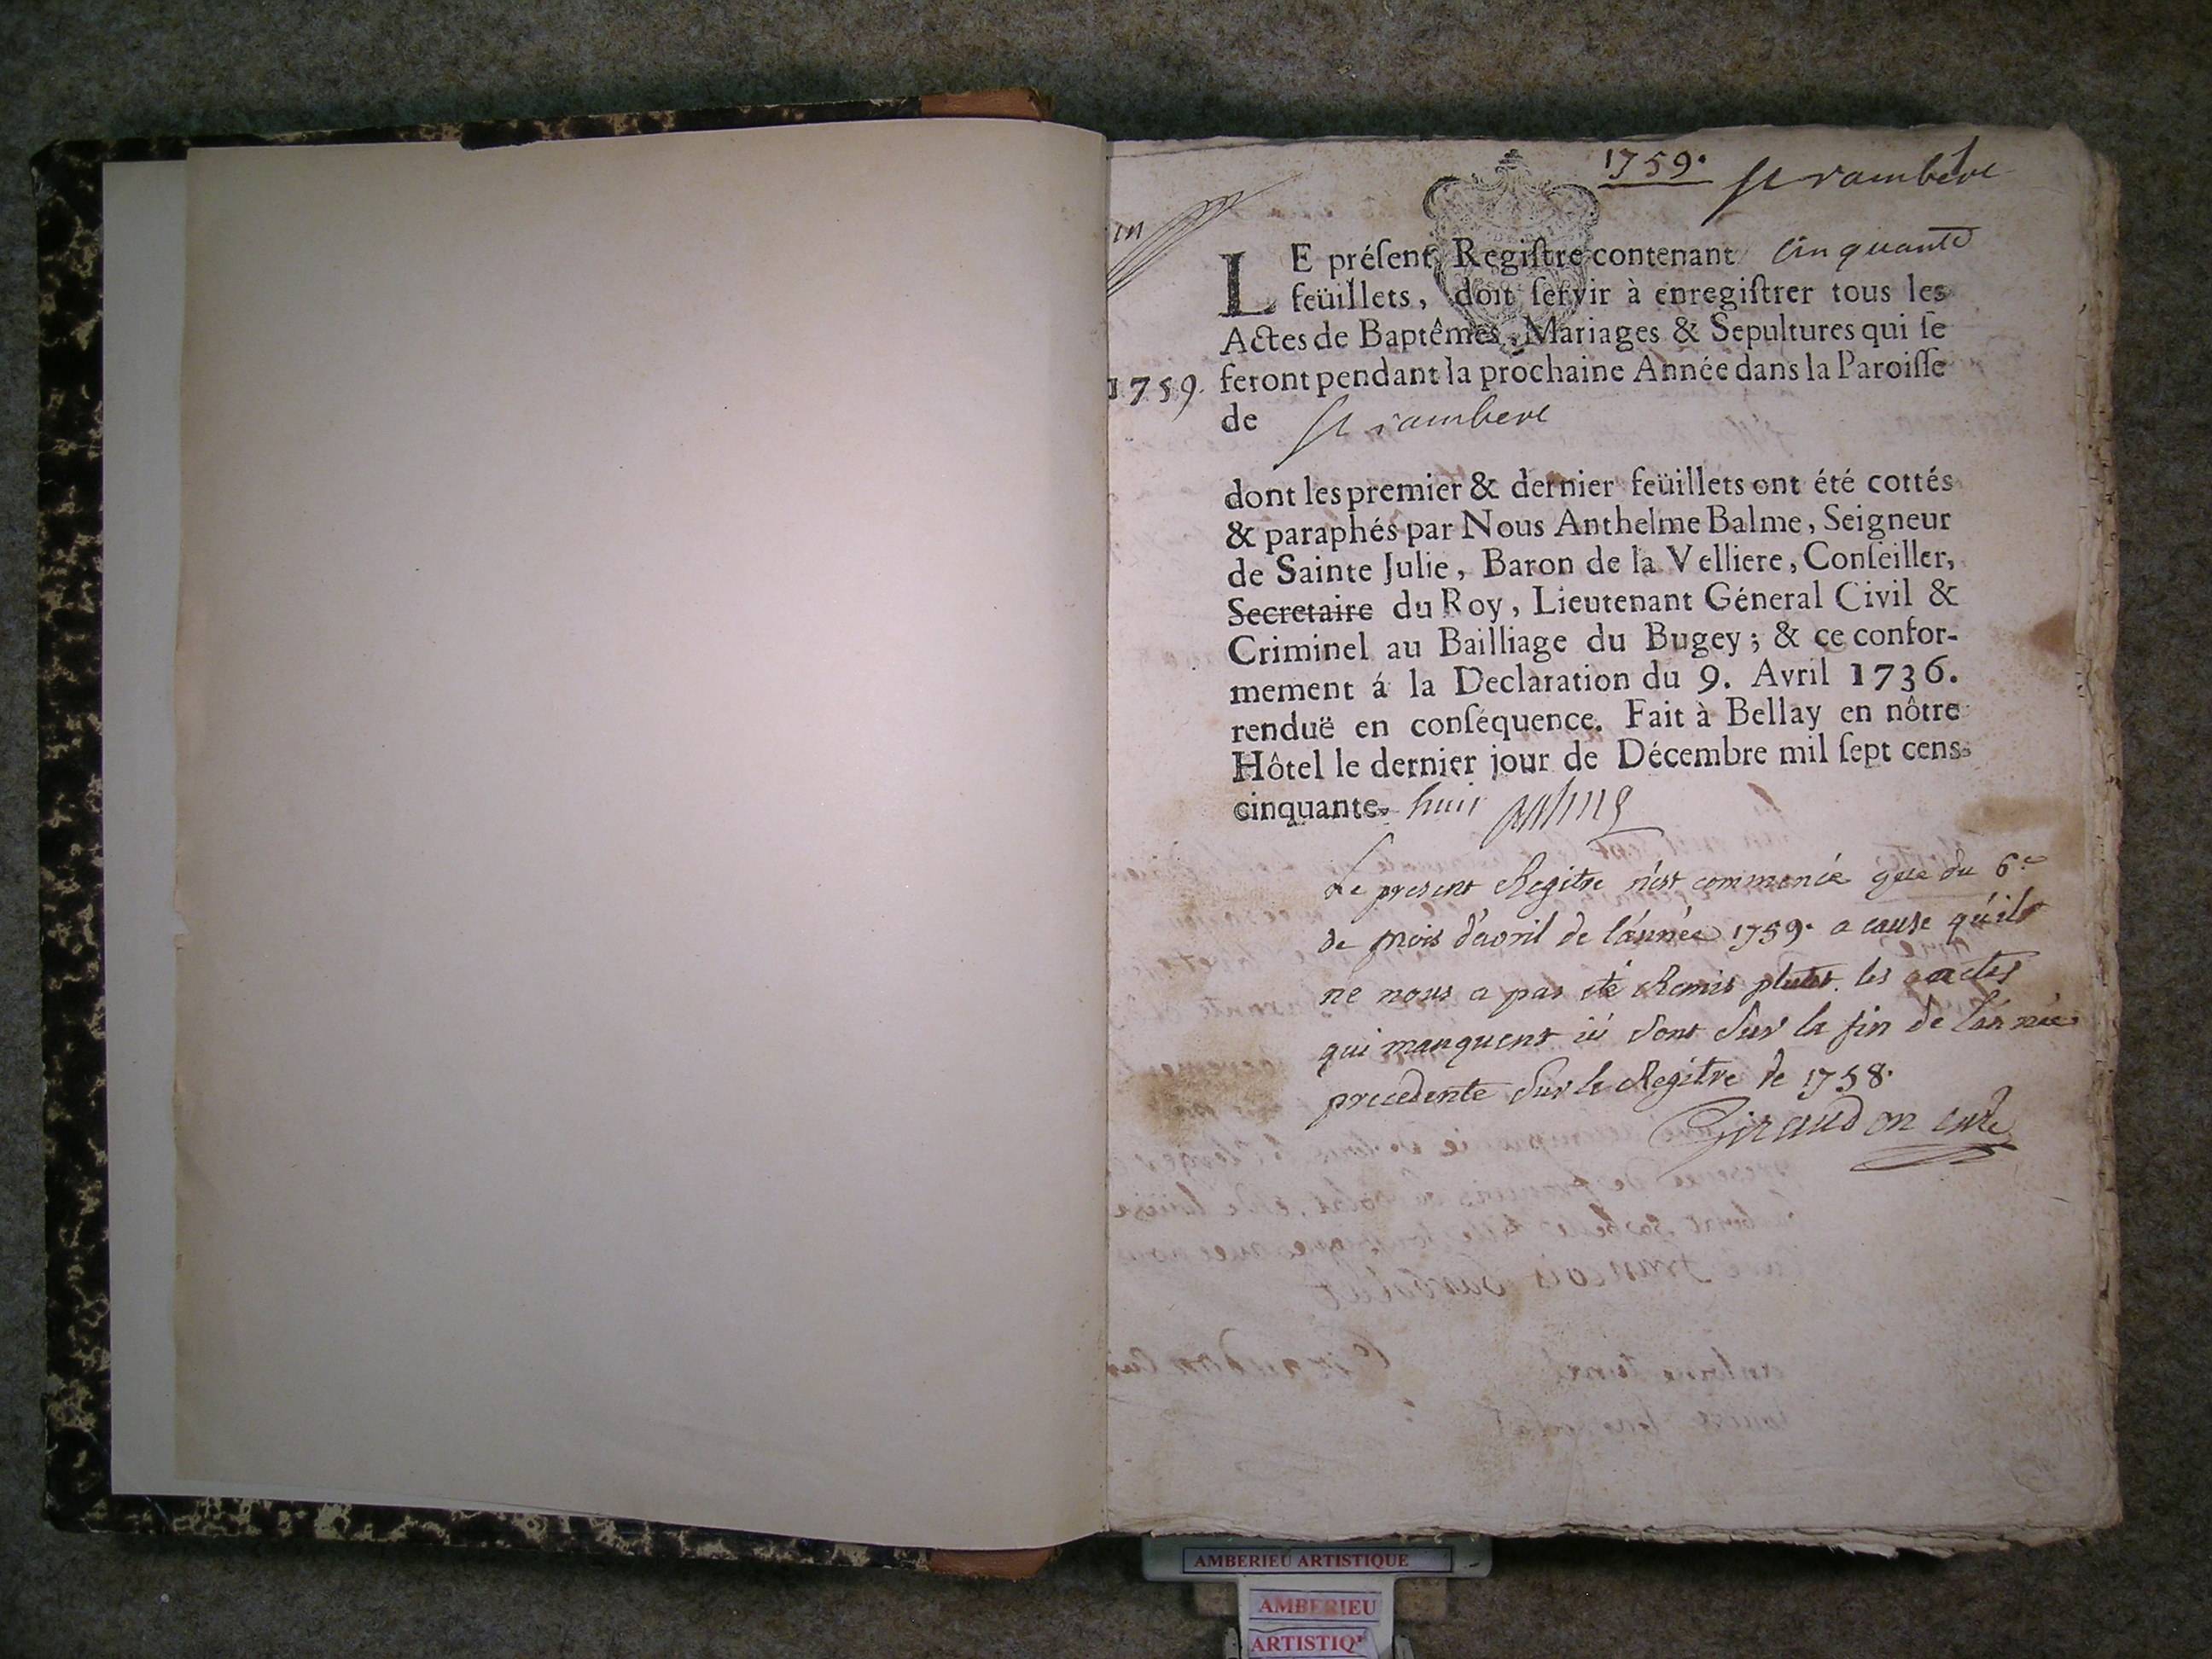 1759. st rambert
LE préſent Regiſtre contenant cinquante
feüillets, doit ſervir à enregiſtrer tous les
Actes de Baptêmes, Mariages & Sepultures qui ſe
1759. feront pendant la prochaine Année dans la Paroiſſe
de st rambert
dont les premier & dernier feüillets ont été cottés
& paraphés par Nous Anthelme Balme, Seigneur
de Sainte Julie, Baron de la Velliere, Conſeiller,
Secretaire du Roy, Lieutenant Géneral Civil &
Criminel au Bailliage du Bugey; & ce confor-
mement á la Declaration du 9. Avril 1736.
renduë en conſéquence. Fait à Bellay en nôtre
Hôtel le dernier jour de Décembre mil ſept cens
cinquante huit Balme
Le present Regitre n'est commencé que du 6e
de mois d'avril de l'année 1759. a cause qu'il
ne nous a pas eté Remis plutot. les actes
qui manquent ici sont sur la fin de l'année
precedente sur le Regitre de 1758.
Giraudon curé
AMBERIEU ARTISTIQUE
AMBERIEU
ARTISTIQ